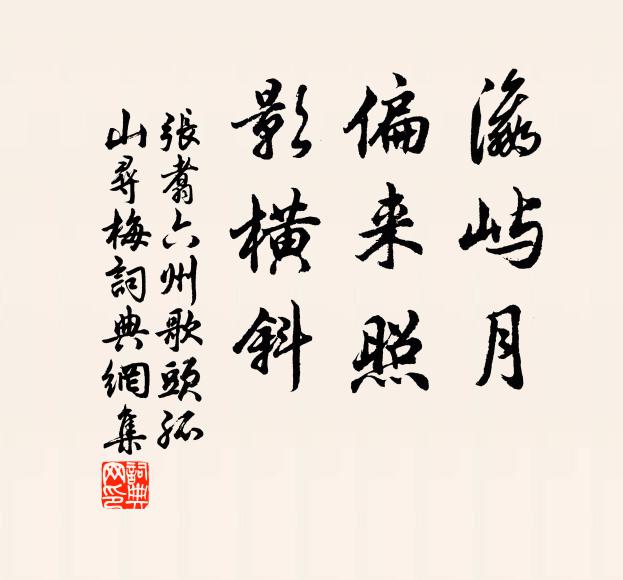 瀛屿月
偏来照
影橫斜
張翥六州歌頭孤
山尋梅詞典網集
詞典网印